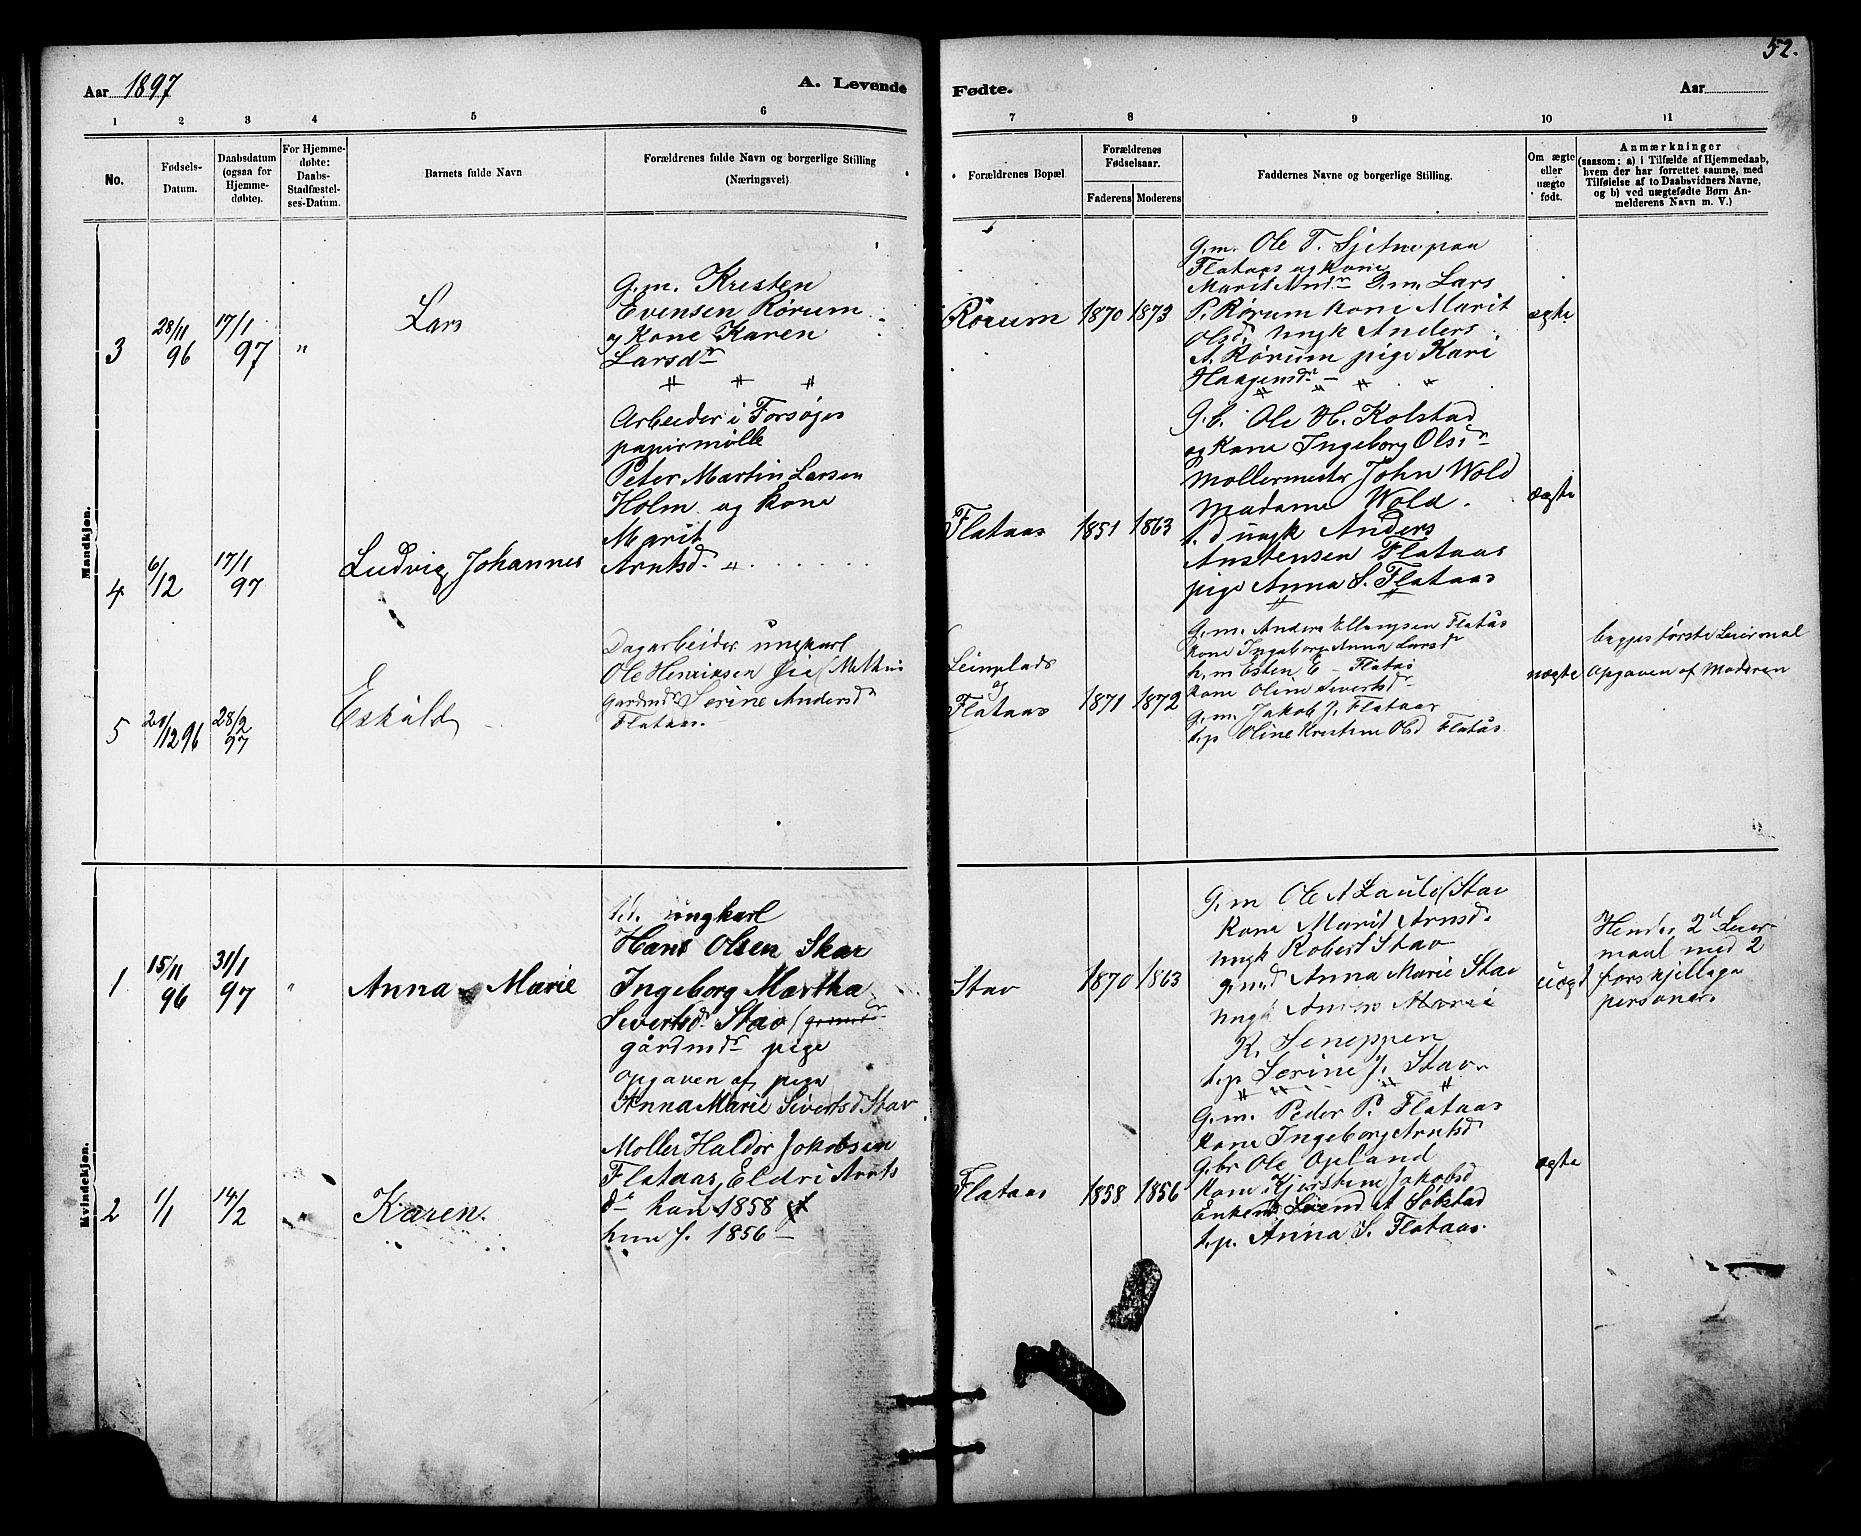 52.
Aar 1897
A. Levende Fødte.
Aar
1 2 3 4 5 6 7 8 9 10 11
No.
Fødsels-Datum.
Daabsdatum (ogsaa for Hjemmedøbte).
For Hjemmedøbte: Daabs-Stadfæstelses-Datum.
Barnets fulde Navn
Forældrenes fulde Navn og borgerlige Stilling (Næringsvei)
Forældrenes Bopæl
Forældrenes Fødselsaar.
Faderens Moderens
Faddernes Navne og borgerlige Stilling.
Om ægte eller uægte født.
Anmærkninger
(saasom: a) i Tilfælde af Hjemmedaab, hvem der har forrettet samme, med Tilføielse af to Daabsvidners Navne, og b) ved uægtefødte Børn Anmelderens Navn m. V.)
Mandkjøn.
3
28/11 96
17/1 97
"
Lars
G.m. Kristen
Evensen Rørum
og Kone Karen
Larsdr
Rørum
1870 1873
G.m. Ole T. Sjetne paa
Flataas og Kone
Marit Andr G.m. Lars
P. Rørum Kone Marit
Olsd. Ungk Anders
A. Rørum pige Kari
Haagensdr
ægte
4
6/12
17/1 97
Ludvig Johannes
Arbeider i Forsøges
papirmølle
Peter Martin Larsen
Holm og Kone
Marit
Arntsd. "
Flataas
1851 1863
G.b. Ole H. Kolstad
og Kone Ingeborg Olsdr
Møllermester John Wold
Madame Wold.
t.d ungk Anders
Anstensen Flataas
pige Anna S. Flataas
ægte
5
20/12 96
28/2 97
Eskild
Dagarbeider ungkarl
Ole Henriksen Øie
gardmdr Serine Andersd
Flataas.
Leinplads
og
Flataas
1871 1872
G.m. Anders Ellingsen Flatås
Kone Ingeborg Anna Larsdr
h.m Esten E – Flatås
Kone Oline Sivertsdr
G.m. Jakob J. Flataas
t.p Oline Kristine Olsd Flatås.
uægte
begges første Leiermaal
Opgaven af Moderen
Kvindekjøn.
1
15/11 96
31/1 97
"
Anna Marie
t.d. ungkarl
Hans Olsen Skar
Ingeborg Martha
Sivertsdr Stav
gårdmdr pige
Opgaven af pige
Anna Marie Sivertsd Stav
Stav
1870 1863
G.m Ole A (Stav
Kone Marit Arnsdr
Ungk Robert Stav
Anna Marie Stav
Marie
K.
t.p Serine J. Stav
uægt
Hendes 2d Leier
maal med 2
forskjellige
personer.
2
1/1
14/2
"
Karen.
Møller Haldor Jakobsen
Flataas, Eldri Arnts
dr han f 1858
hun f. 1856 –
Flataas
1858 1856
G.m. Peder P. Flataas
Kone Ingeborg Arntsd
G.br Ole Opland
Kone Kjerstine Jakobsd
Enkem Svend A Søkstad
t.p. Anna S. Flataas.
ægte